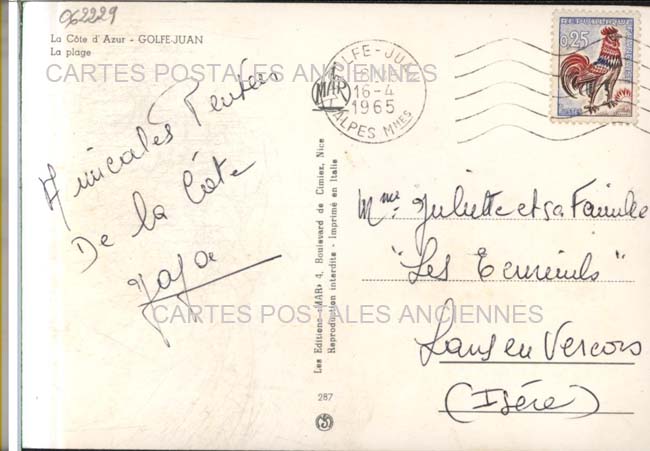 062229
La Côte d'Azur - GOLFE-JUAN
La plage
CARTES POSTALES ANCIENNES
Amicales Pensées
De la Côte
CARTES POSTALES ANCIENNES
Les Editions «MAR» 4, Boulevard de Cimiez, Nice
Reproduction interdite - Imprimé en Italie
287
MAR
GOLFE-JUAN
16-4
1965
ALPES Mmes
0,25
Mme Juliette et sa Famille
"Les Ecureuils"
Lans en Vercors
(Isère)